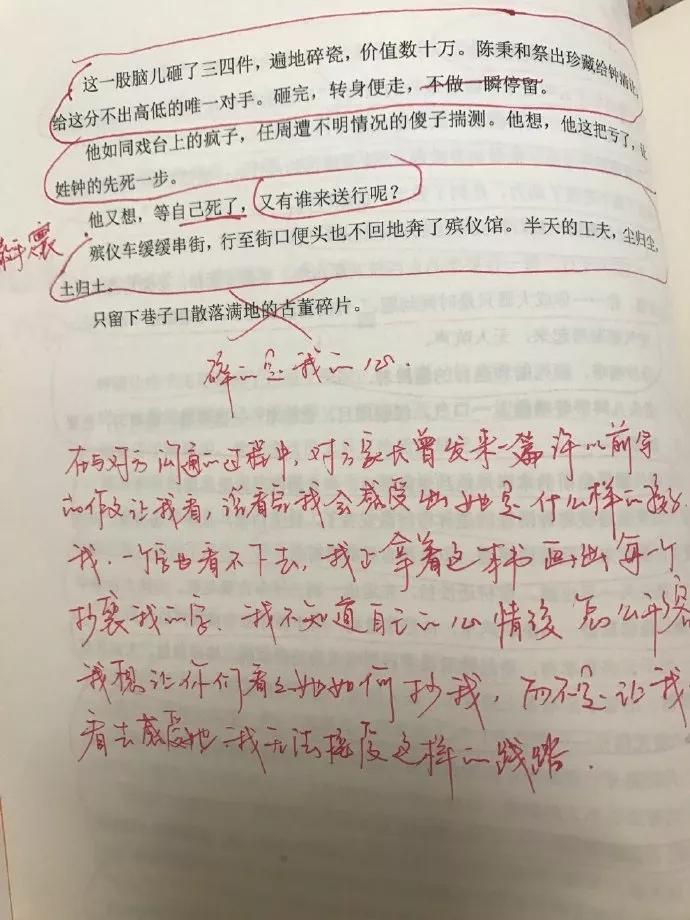 这一股脑儿砸了三四件，遍地碎瓷，价值数十万。陈秉和祭出珍藏给钟
给这分不出高低的唯一对手。砸完，转身便走，不做一瞬停留。
他如同戏台上的疯子，任周遭不明情况的傻子揣测。他想，他这把亏了，让
姓钟的先死一步。
他又想，等自己死了，又有谁来送行呢？
殡仪车缓缓串街，行至街口便头也不回地奔了殡仪馆。半天的工夫，尘归尘，
土归土。
只留下巷子口散落满地的古董碎片。
碎的是我的心.
在与对方沟通的过程中，对方家长曾发来一篇许以前写
的作文让我看，说看后我会感受出她是什么样的孩子
我.一个字也看不下去，我正拿着这本书画出每一个
抄袭我的字.我不知道自己的心情该怎么平复
我想让你们看看她如何抄我，而不是让我
看去感受她 我无法接受这样的践踏.